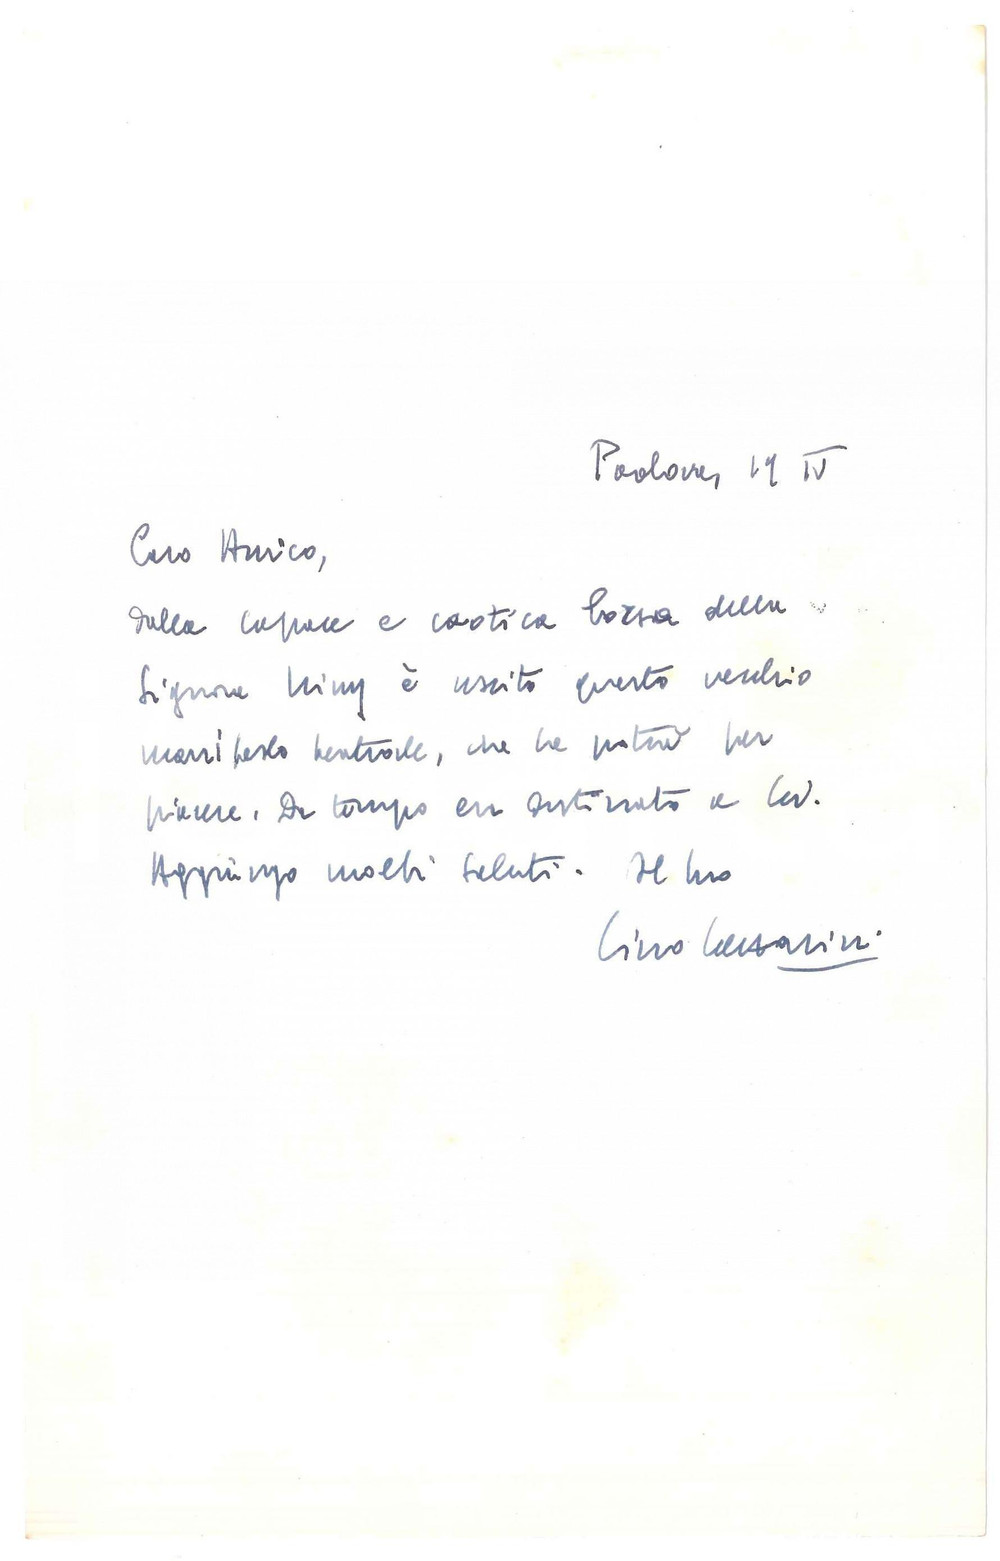 Padova, 19 IV
Caro Amico,
dalla capace e caotica borsa della
Signora è uscito questo vecchio
manifesto teatrale, che Le potrà far
piacere. Da tempo era destinato a Lei.
Aggiungo molti saluti. Il Suo